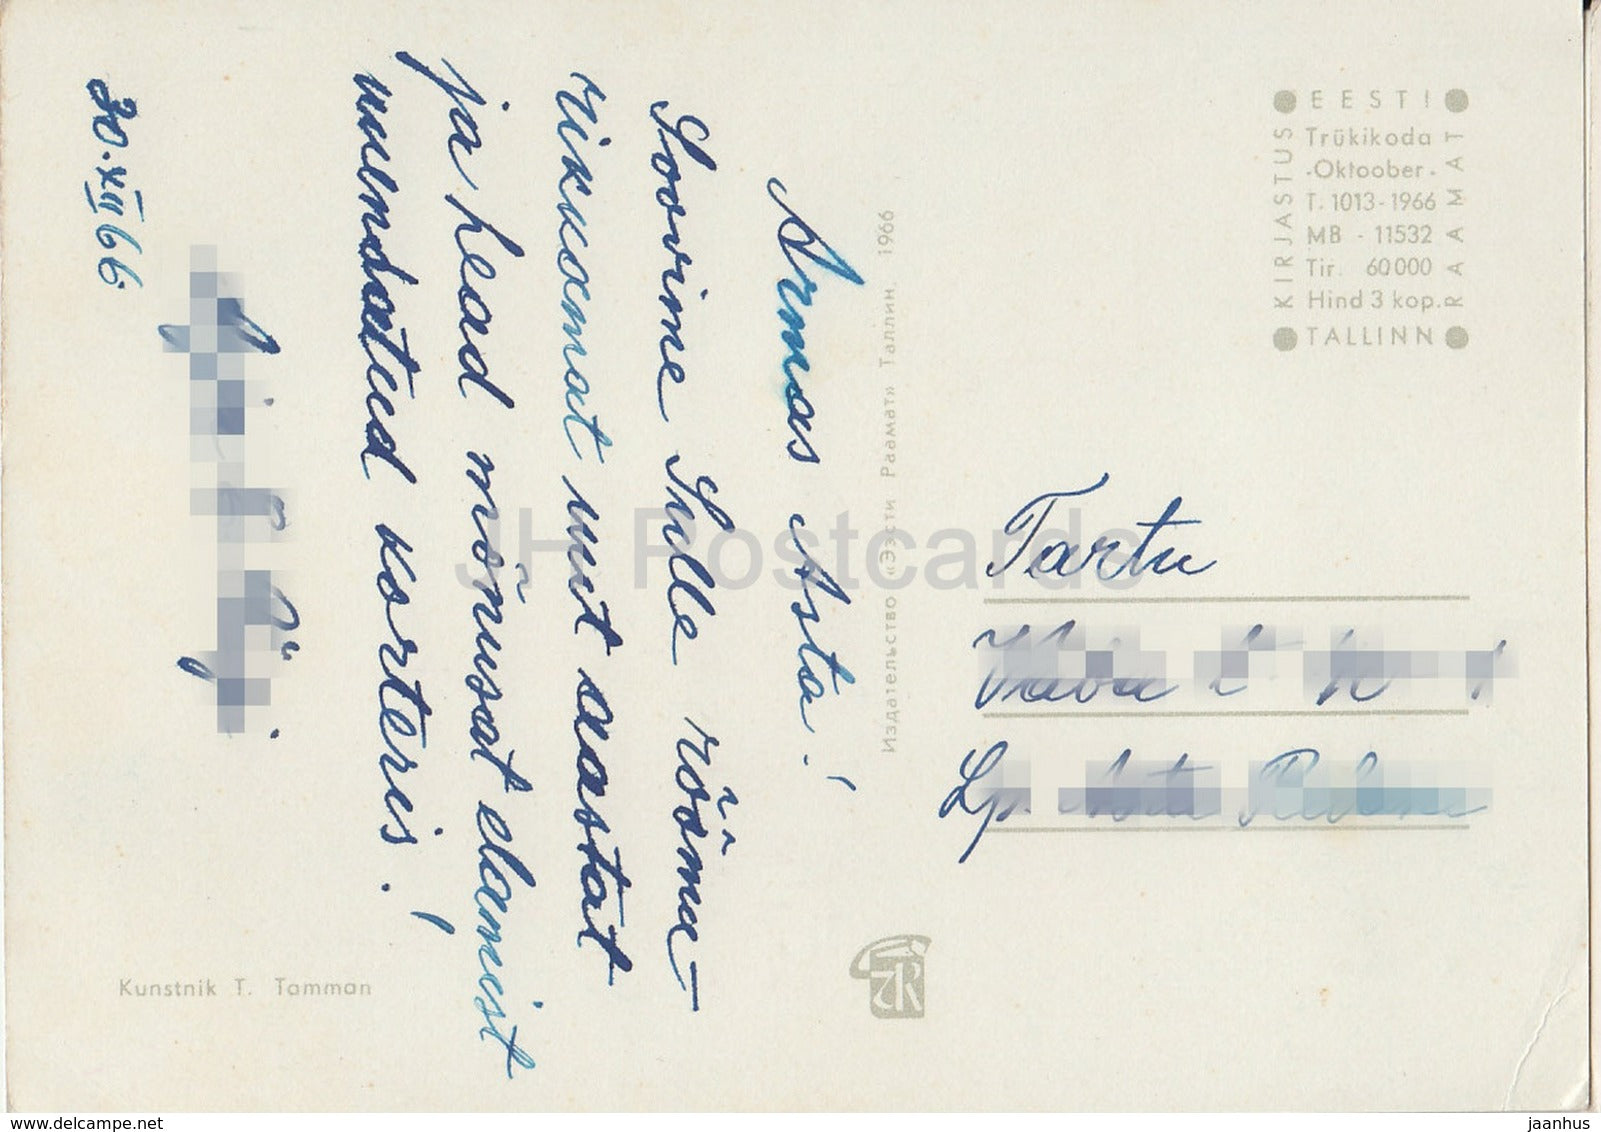 Armas Asta!
Soovime Sulle rõõmu-
rikkamat uut aastat
ja head mõnusat elamist
uuendatud korteris!
30.XII 66.
Tartu
Lp.
EESTI
Trükikoda
-Oktoober-
T. 1013-1966
MB - 11532
Tir. 60000
Hind 3 kop.
TALLINN
KIRJASTUS
RAAMAT
Издательство «Ээсти Раамат» Таллин, 1966
Kunstnik T. Tamman
JH Postcards
www.delcampe.net
jaanhus